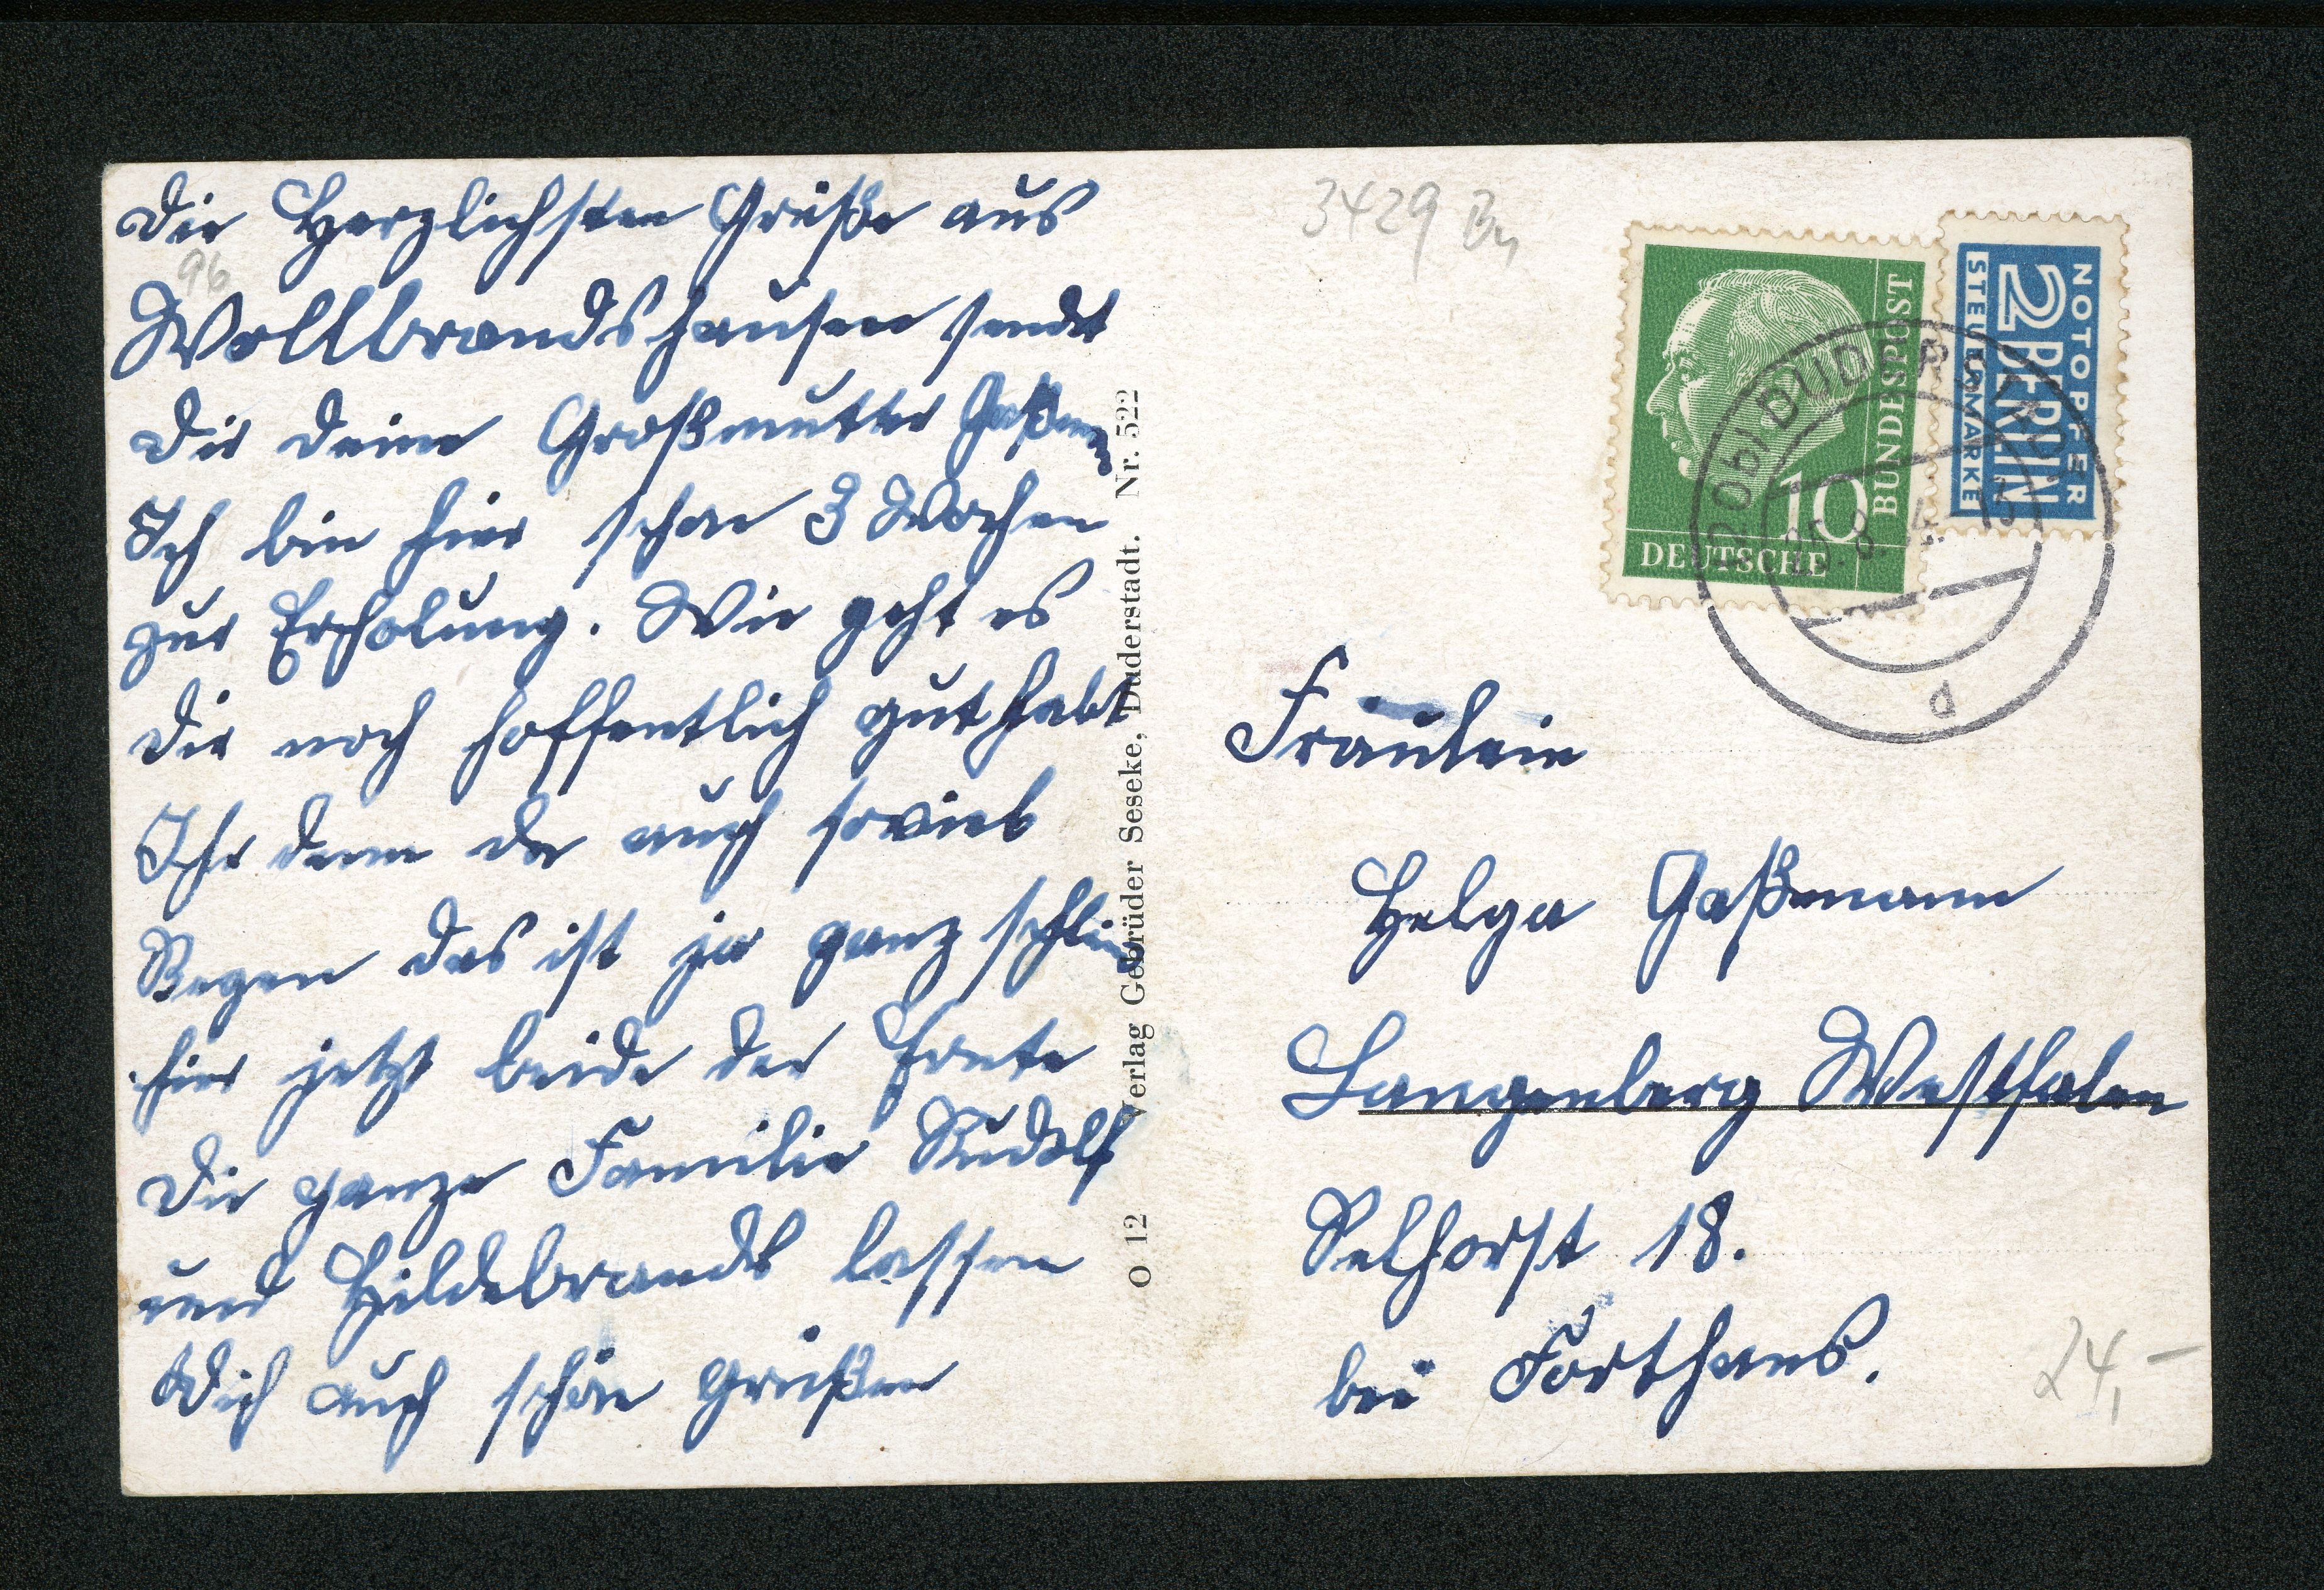 Die Herzlichsten Grüße aus
96
Wollbrandshausen sendet
Dir deine Großmutter Gaßmann
Ich bin hier schon 3 Wochen
zur Erholung. Wie geht es
Dir noch hoffentlich gut habt
Ihr denn da auch soviel
Regen das ist ja ganz schlim
hier jetzt beide der Ernte
Die ganze Familie Rudolf
und Hildebrandt lassen
Dich auch schön grüßen
O 12 Verlag Gebrüder Seseke, Duderstadt. Nr. 522
3429
DEUTSCHE BUNDESPOST
10
NOTOPFER
2 BERLIN
STEUERMARKE
(20b) DUDERSTADT
d
Fräulein
Helga Gaßmann
Langenberg Westfalen
Selhorst 18.
bei Forthaus.
24,-